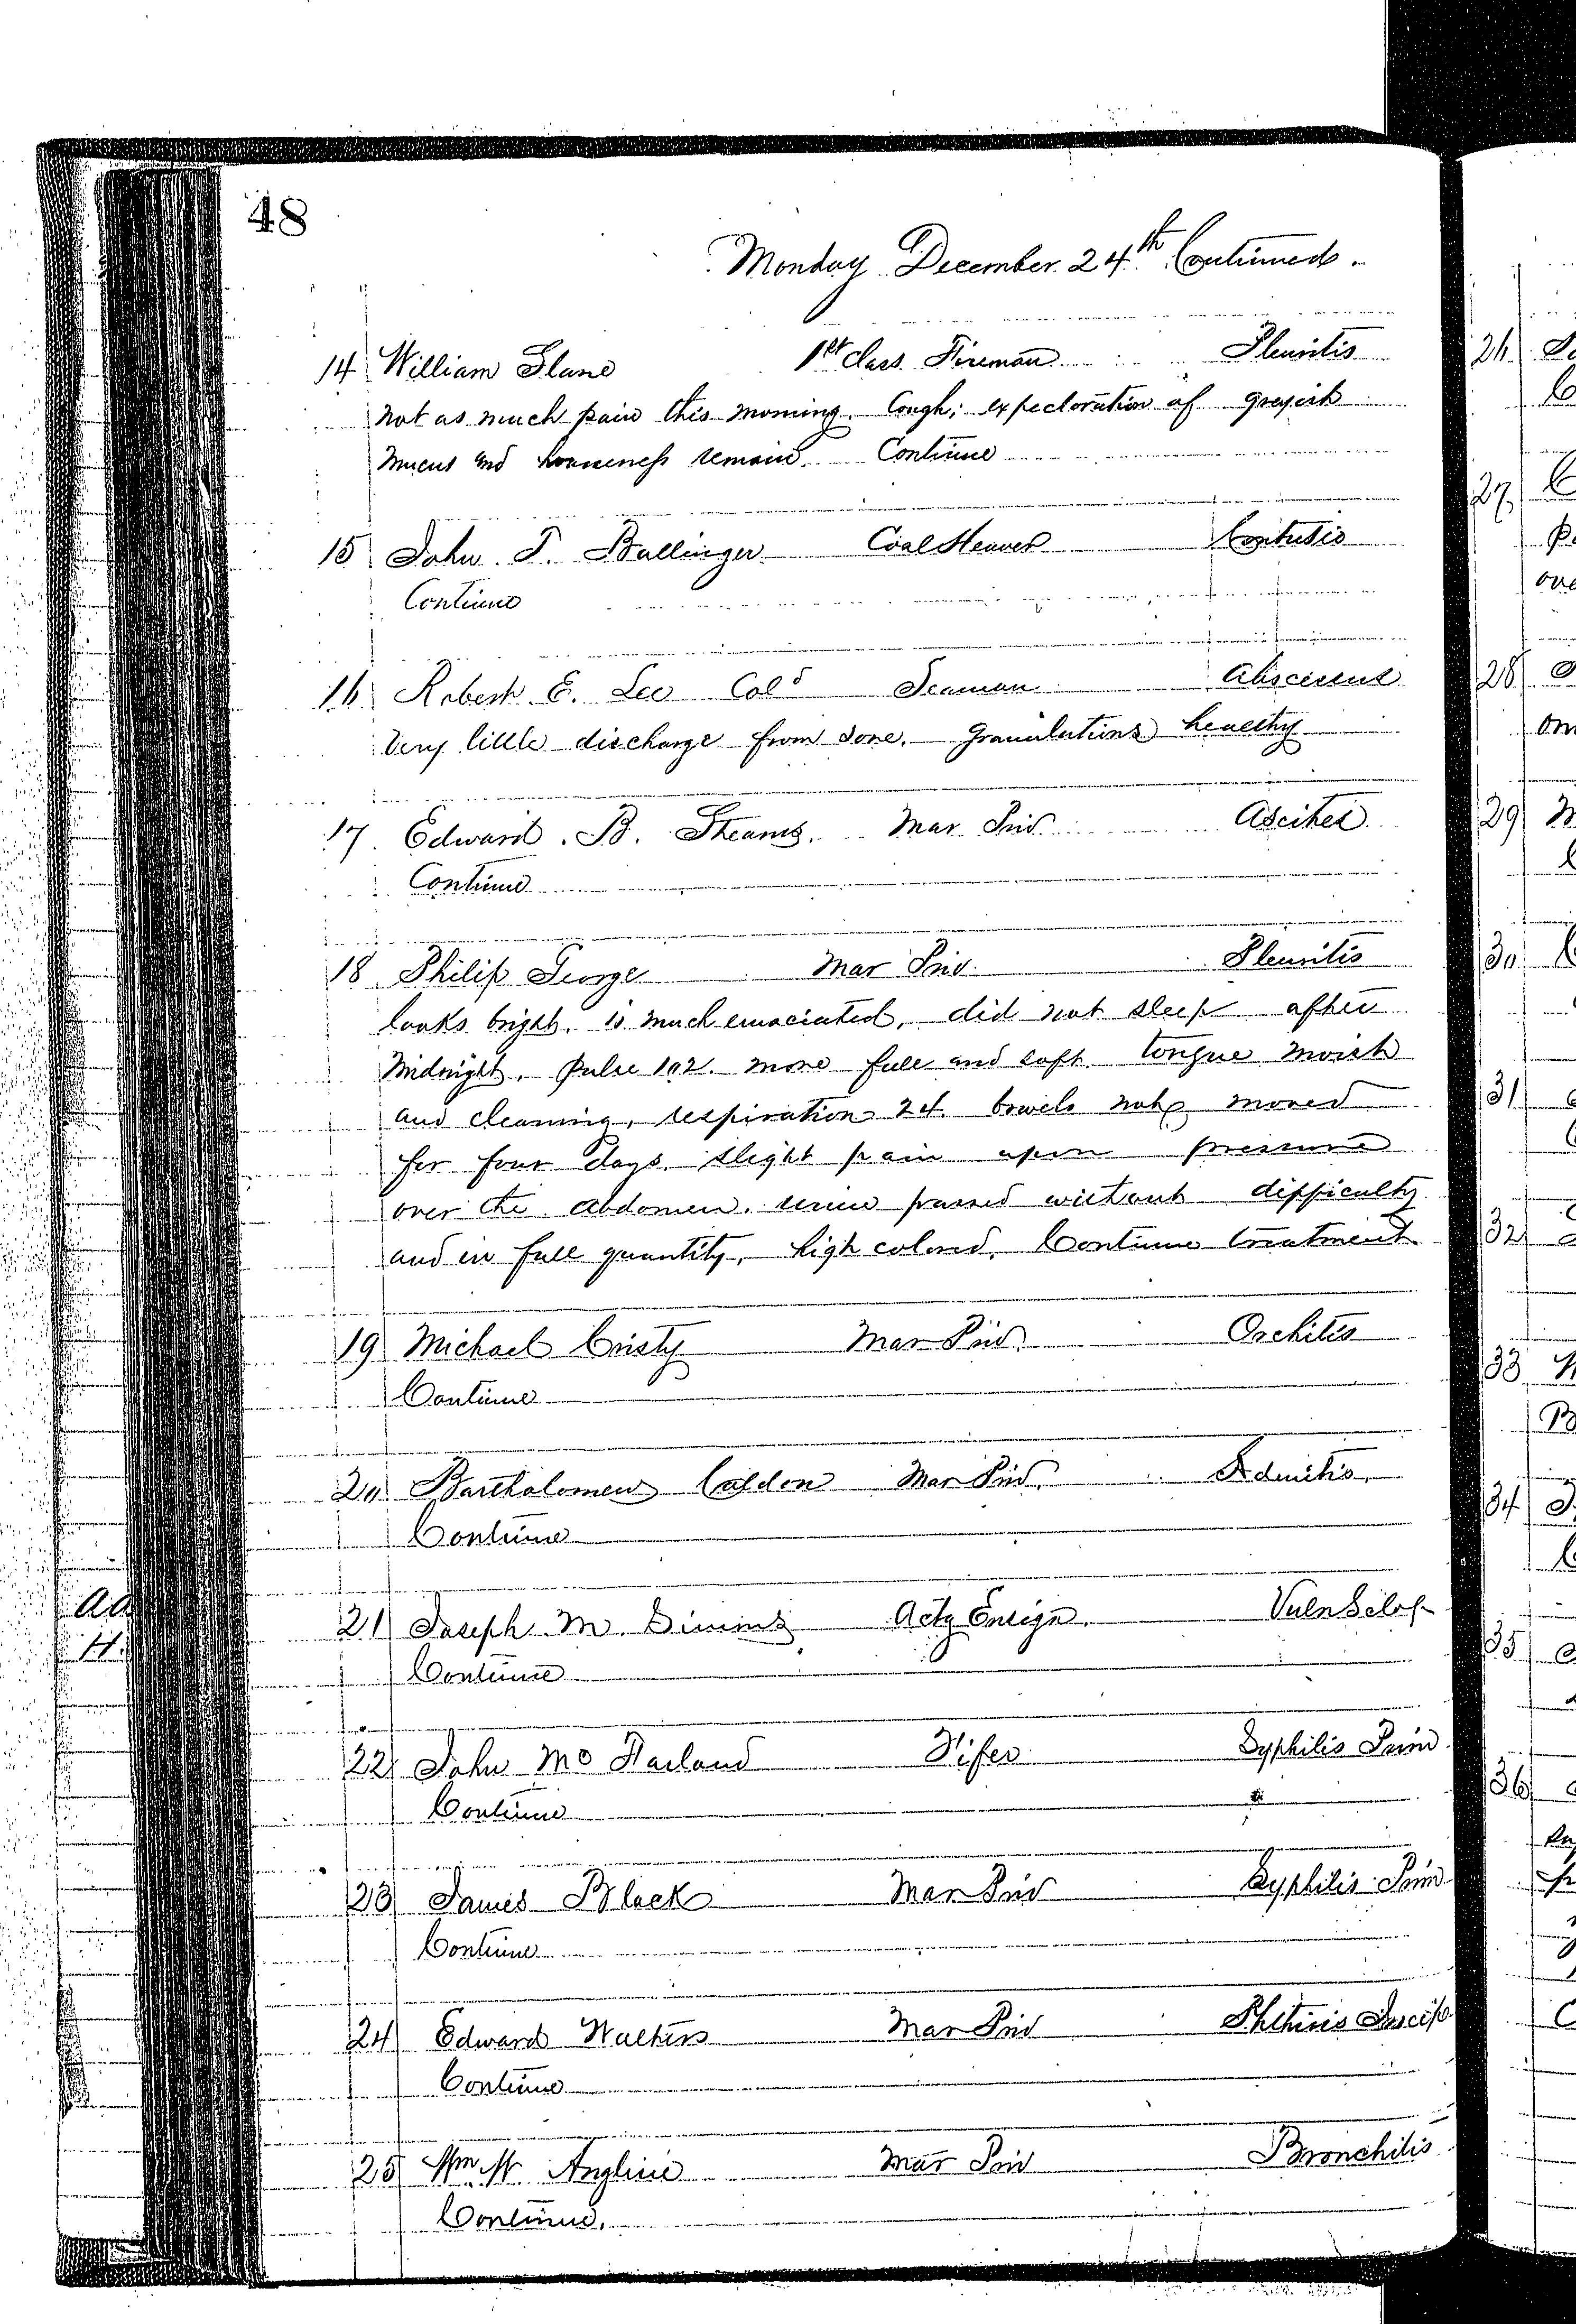 48
Monday December 24th Continued.
14 William Slane 1st Class Fireman Pleuritis
not as much pain this morning. Cough; expectoration of grayish
mucus and hoarseness remain. Continue
15 John T. Ballinger Coal Heaver Contusio
Continue
16 Robert E. Lee Cold Seaman Abscessus
Very little discharge from sore. Granulations healthy
17 Edward B. Stearns. Mar Priv. Ascites
Continue
18 Philip George Mar Priv. Pleuritis
looks bright. is much emaciated, did not sleep after
midnight. Pulse 102. more full and soft. tongue moist
and cleaning, respiration 24. bowels not moved
for four days. slight pain upon pressure
over the abdomen. urine passed without difficulty
and in full quantity, high colored. Continue treatment
19 Michael Cristy Mar Priv. Orchitis
Continue
20 Bartholomew Caldon Mar Priv. Adenitis.
Continue
21 Joseph M. Simms Actg Ensign. Vuln Sclop
Continue
22 John McFarland Fifer Syphilis Prim
Continue
23 James Black Mar Priv Syphilis Prim
Continue
24 Edward Walters Mar Priv Phthisis Incip.
Continue
25 Wm. W. Angline Mar Priv Bronchitis
Continue.
Ad
H.
26
27
28
29
30
31
32
33
34
35
36